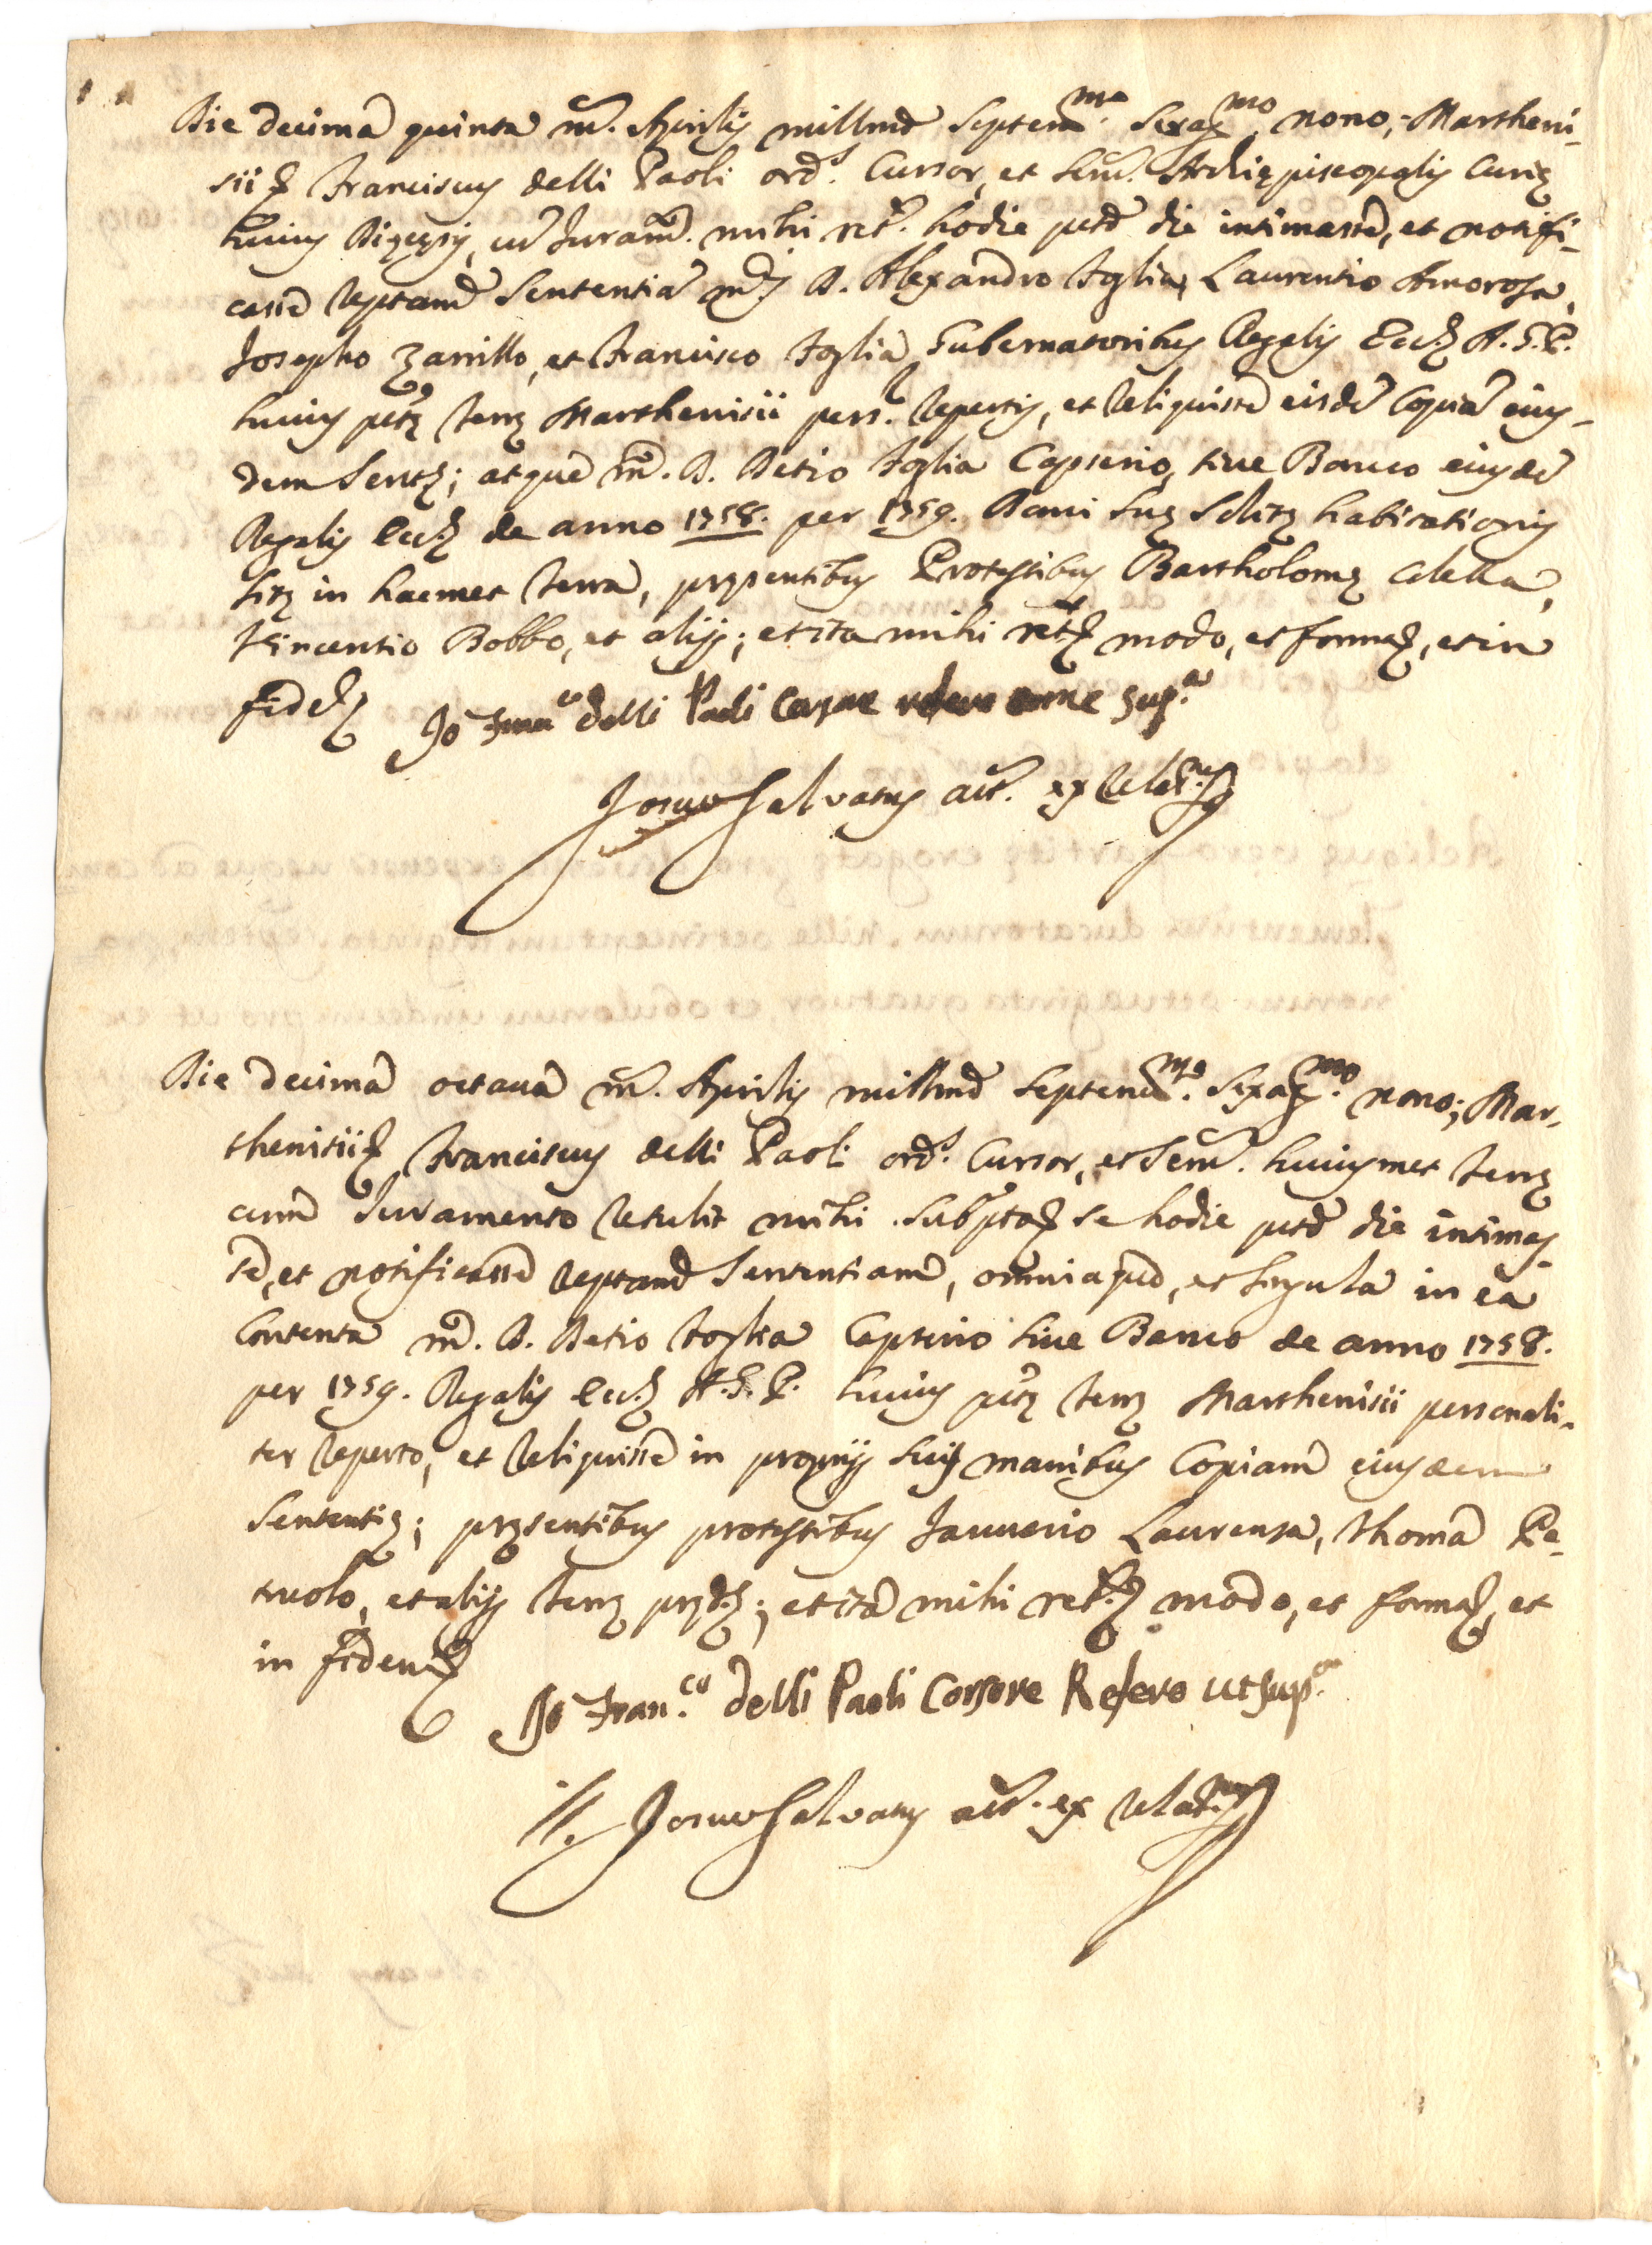 Die decima quinta m. Aprilis millmo Septem.mo Sexag.mo nono; Martheni-
sii Franciscus delli Paoli ord.s Cursor, et Serv. Archiepiscopalis Curię
huius Dięcęsis, cū Juram. mihi ret. hodie ptto die intimasse, et notifi-
casse reptam Sententiā m.ci D. Alexandro Foglia, Laurentio Amoroso,
Josepho Zarrillo, et Francisco Foglia Gubernatoribus Regalis Eccl. A. G. P.
huius pttę terrę Marthenisii pers. repertis, et reliquisse eisdē Copiā eius-
dem Sentę; atque m. D. Decio Foglia Capserio, sive Banco eiusdē
Regalis Eccl. de anno 1758. per 1759. Domi suę solitę habitationis
sitę in hacmet terra, pręsentibus Protestibus Bartholomę Colella,
Vincentio Bobbo, et alijs; et ita mihi ret. modo, et forma, et in
fidē
Jo Fran.co delli Paoli Corsore refero come sup.a
Josue Salvatus act. ex relat.ne
Die decima octava m. Aprilis millmo Septem.mo Sexag.mo nono; Mar-
thenisii Franciscus delli Paoli ord.s Cursor, et Serv. huiusmet terrę
cum Juramento retulit mihi subptto se hodie ptto die intimas-
se, et notificasse reptam Sententiam, omniaque, et singula in ea
Contenta m. D. Decio Foglia Capserio sive Banco de anno 1758.
per 1759. Regalis Eccl. A. G. P. huius pttę terrę Marthenisii personali-
ter reperto, et reliquisse in proprijs suis manibus Copiam eiusdem
Sententię; pręsentibus protestibus Januario Laurenza, Thoma Pe-
truolo, et alijs terrę pręd.; et ita mihi ret. modo, et forma, et
in fidem
Jo Fran.co delli Paoli Corsore Refero ut sup.a
Josue Salvatus act. ex relat.ne